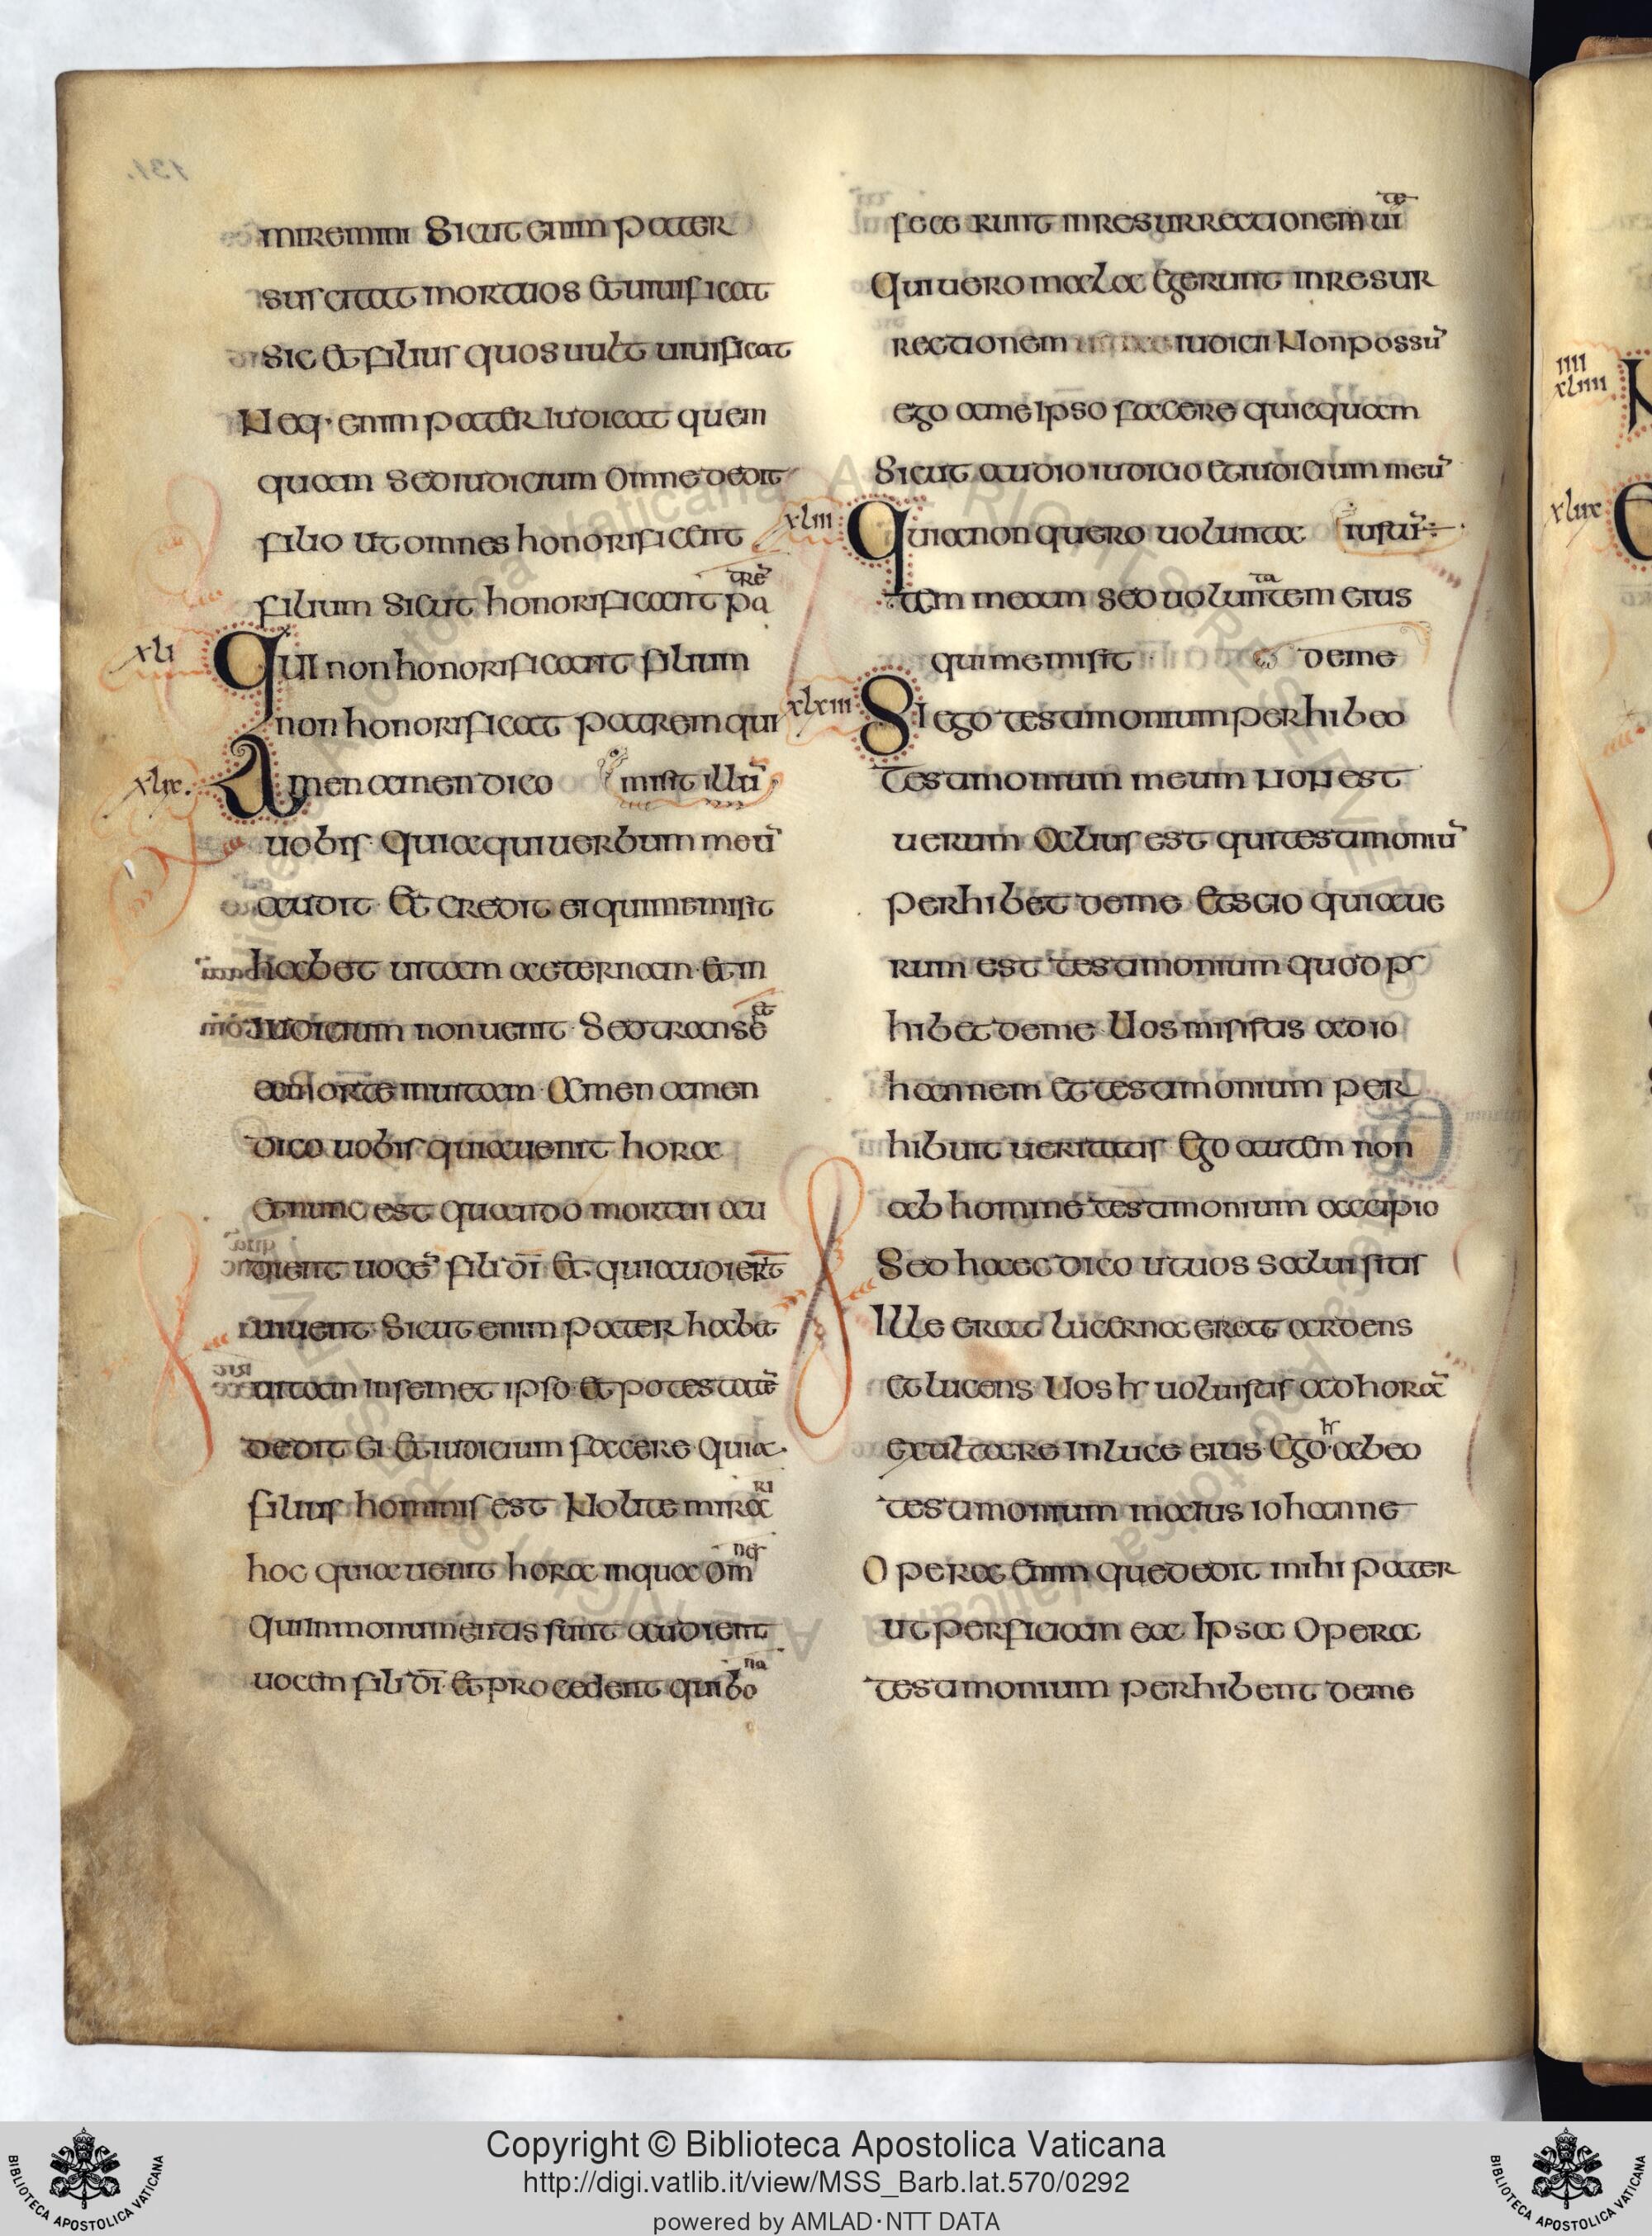 miremini Sicut enim pater
suscitat mortuos et uiuificat
sic et filius quos uult uiuificat
Neq· enim pater iudicat quem
quam sed iudicium omne dedit
filio ut omnes honorificent
filium sicut honorificant pa
trē
xli
Qui non honorificant filium
non honorificat patrem qui
xlix.
Amen amen dico misit illū
uobis quia qui uerbum meū
audit et credit ei qui me misit
habet uitam aeternam et in
iudicium non uenit Sed transe
et
a morte in uitam Amen amen
dico uobis quia uenit hora
et nunc est quando mortui au
dient uocē fili dī et qui audiert
uiuent Sicut enim pater habet
uitam in semet ipso et potestatē
dedit ei et iudicium facere quia
filius hominis est Nolite mira
ri
hoc quia uenit hora in qua om
nes
qui in monumentis sunt audient
uocem fili dī et procedent qui bo
na
fecerunt in resurrectionem ui
te
Qui uero mala egerunt in resur
rectionem iudicii Non possū
ego a me ipso facere quicquam
Sicut audio iudicio et iudicium meū
xliii
Quia non quero uolunta iustū
tem meam sed uoluntem eius
ta
qui me misit de me
xlxiii
Si ego testimonium perhibeo
testimonium meum non est
uerum Alius est qui testimoniū
perhibet de me Et scio quia ue
rum est testimonium quod p
hibet de me Uos misistis ad io
hannem et testimonium per
hibuit ueritatis Ego autem non
ab homine testimonium accipio
Sed haec dico ut uos salui sitis
Ille erat lucerna erat ardens
et lucens Uos h uoluistis ad horā
exultare in luce eius Ego abeo
h
testimonium maius iohanne
Opera enim que dedit mihi pater
ut perficiam ea Ipsa Opera
testimonium perhibent de me
131.
IIII
xliiii
xlix
N
E
Copyright © Biblioteca Apostolica Vaticana
http://digi.vatlib.it/view/MSS_Barb.lat.570/0292
powered by AMLAD·NTT DATA
BIBLIOTECA APOSTOLICA VATICANA
BIBLIOTECA APOSTOLICA VATICANA